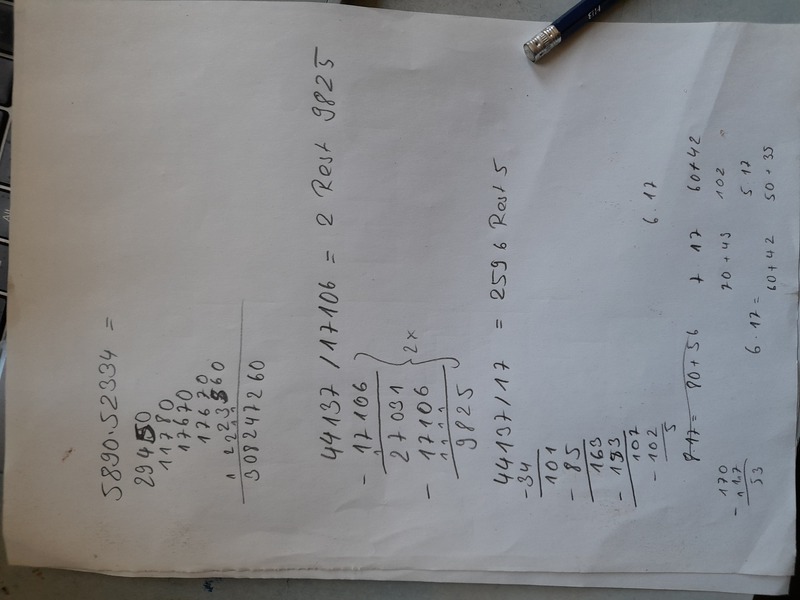 5890·52334 =
29450
11780
17670
17670
23560
308247260
44137/17106 = 2 Rest 9825
- 17106
27031
- 17106
9825
2x
44137/17 = 2596 Rest 5
-34
101
- 85
163
- 153
107
- 102
5
6·17
8·17= 80+56
7 17
60+42
- 170
117
53
70+49
102
6·17=
5 17
60+42
50+35